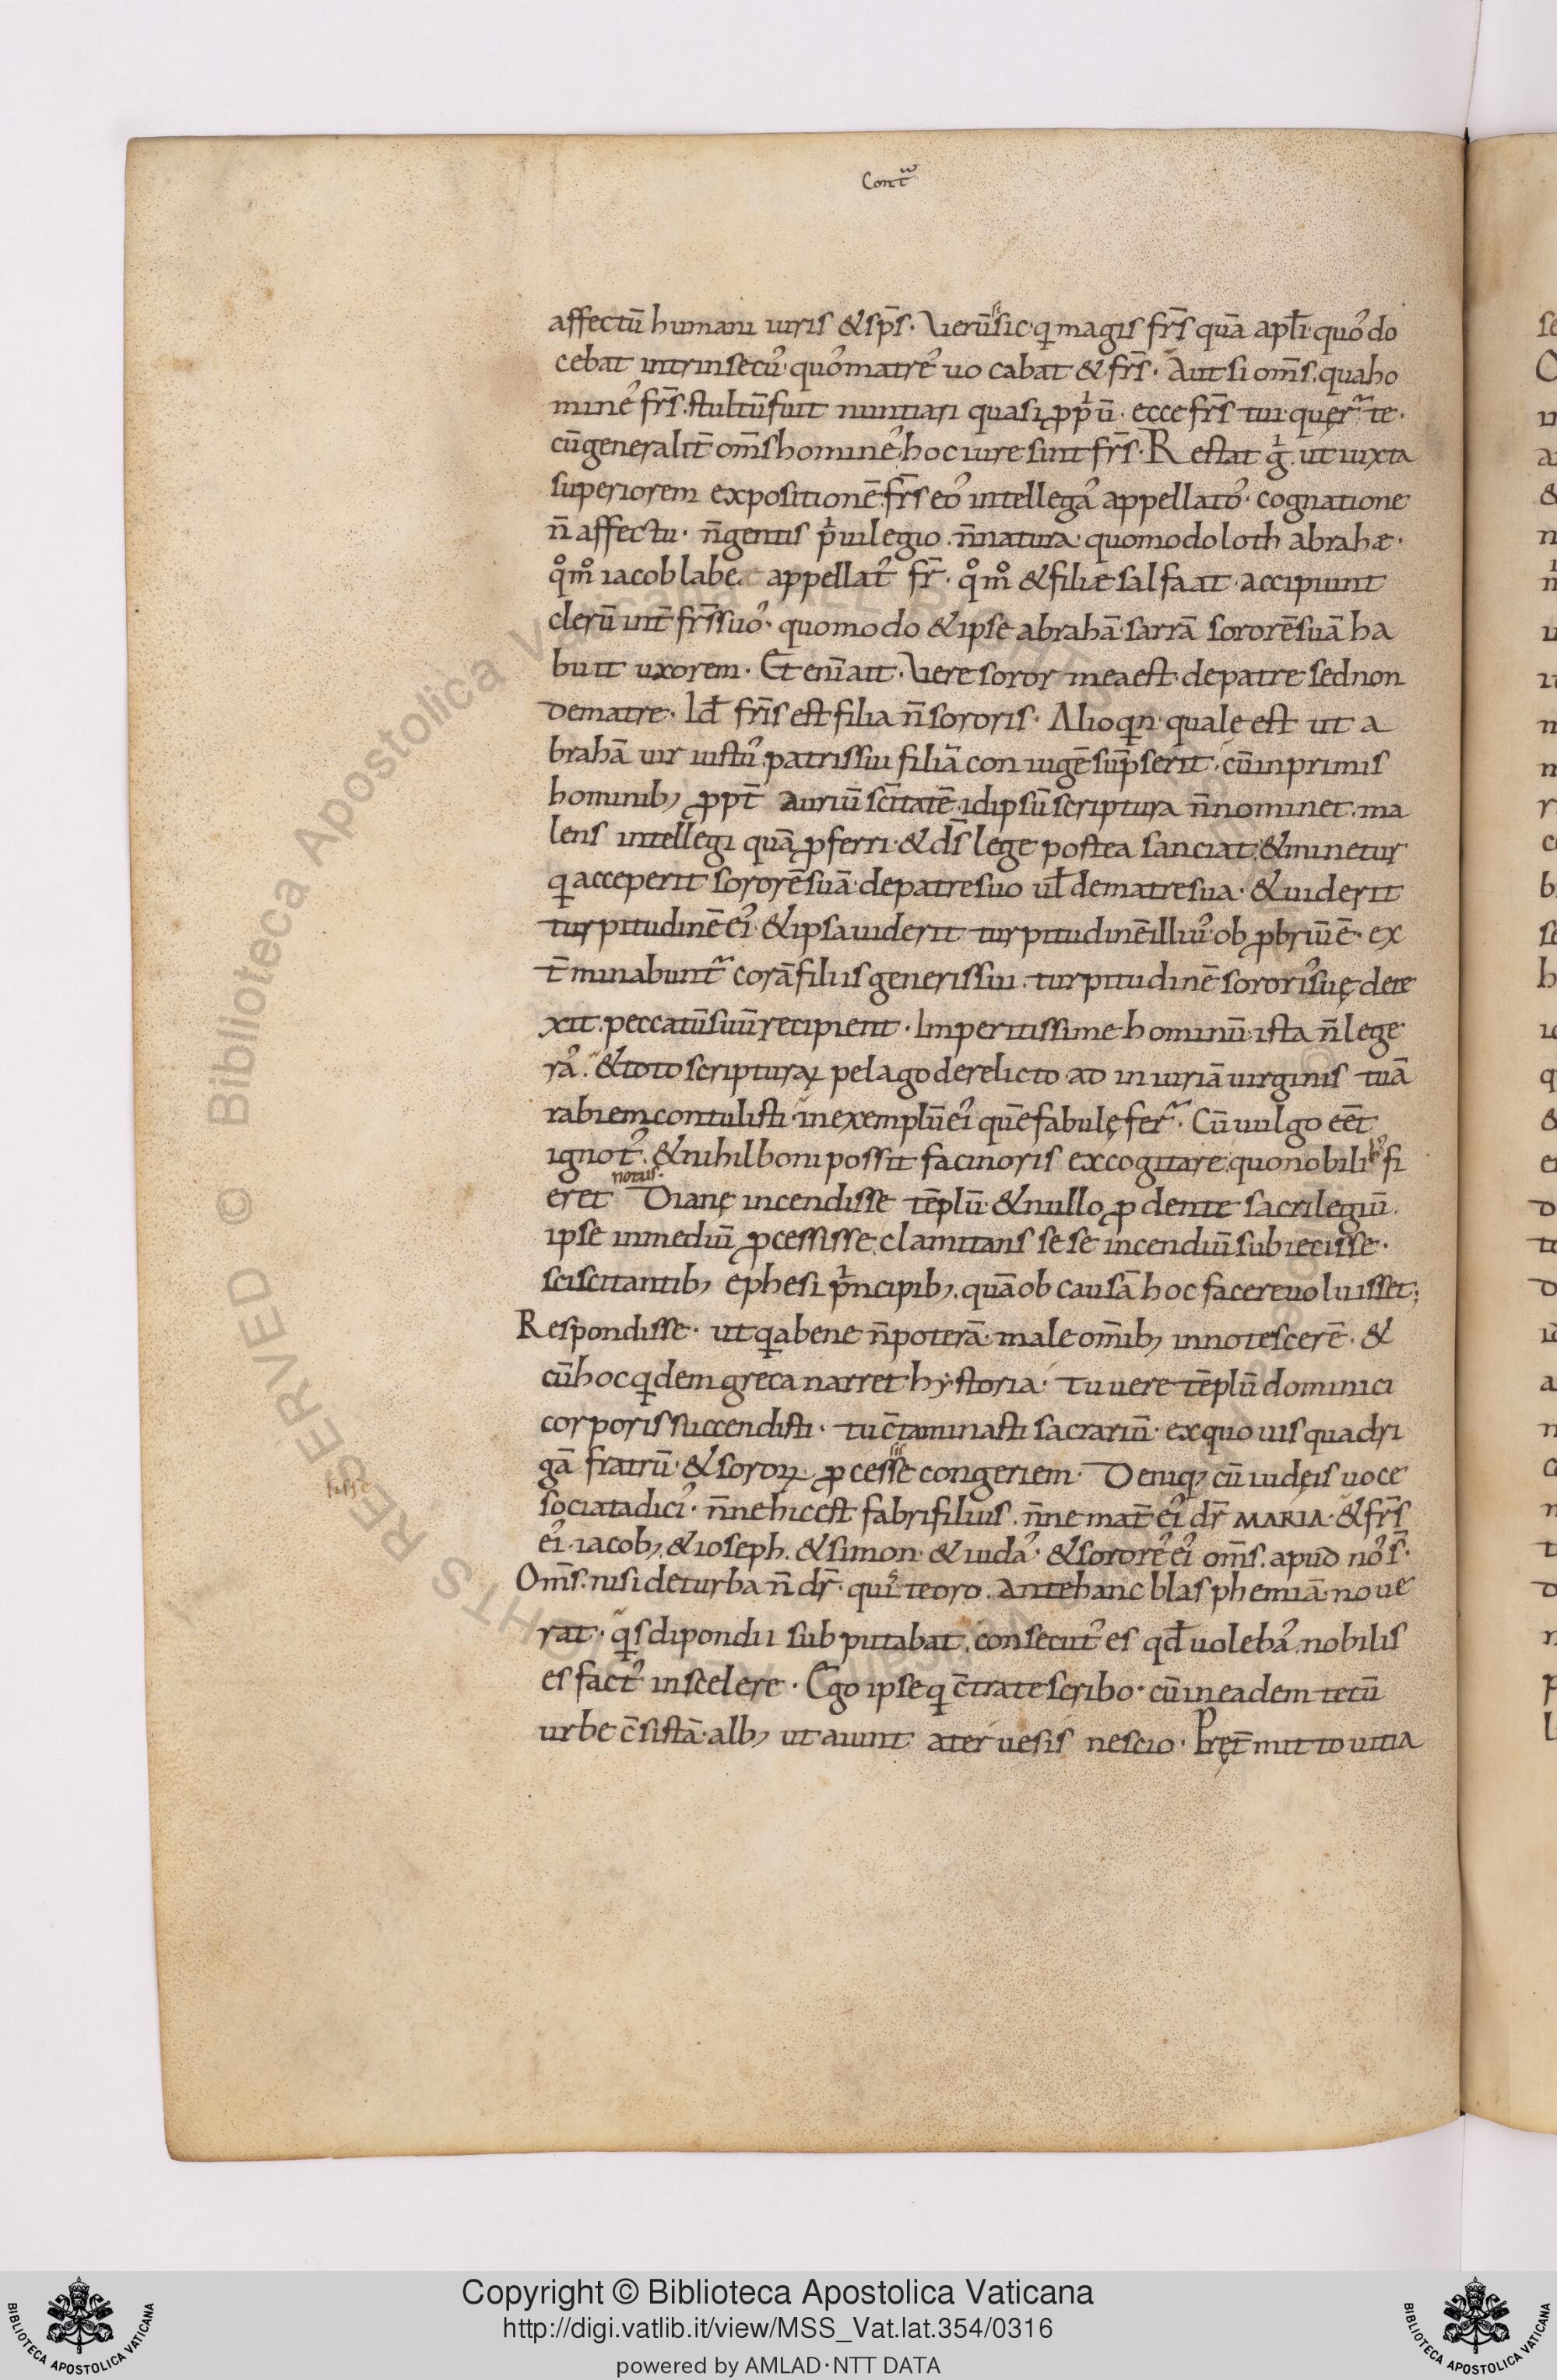 Contᷓ
affectū humani iuris & sp̄s. Verū sic q magis fr̄s quā apl̄i quoˀ do
cebat intrinsecuˀ quoˀ matreˀ uocabat & fr̄s. Aut si om̄s qua ho
mineˀ fr̄s. stultū fuit nuntiari quasi ꝓpͥū. ecce fr̄s tui querᷓ te.
cū generalit̄ om̄s homineˀ hoc iure sint fr̄s. Restat gͥ. ut iuxta
superiorem expositionē. fr̄s eoˀ intellegaˀ appellatoˀ. cognatione
n̄ affectu. n̄ gentis pͥuilegio. n̄ natura. quomodo loth abrahæ.
qͦmͦ iacob labe appellatˀ fr̄. qͦmͦ & filiæ salfaat accipiunt
clerū int̄ fr̄s suoˀ. quomodo & ipse abrahā sarrā sororē suā ha
buit uxorem. Et eni᷑ ait. Vere soror mea est de patre sed non
de matre. Id ē fr̄is est filia n̄ sororis. Alioqn quale est ut a
brahā uir iustuˀ patris sui filiā coniugē sūpserit. cū in primis
hominib; ꝓpt̄ auriū sc̄itatē idipsū scriptura n̄ nominet. ma
lens intellegi quā ꝓferri. & ds̄ lege postea sanciat. & minetur
q acceperit sororē suā de patre suo ul̄ de matre sua. & uiderit
turpitudinē eiˀ & ipsa uiderit turpitudinē illiuˀ obꝓbriū ē. ex
t̄minabuntᷓ corā filiis generis sui. turpitudinē sororiˀ suę dete
xit. peccatū suū recipient. Imperitissime hominū ista n̄ lege
raˀ. & toto scripturaꝝ pelago derelicto ad iniuriā uirginis tuā
rabiem contulisti. in exemplū eiˀ quē fabulę ferᷓ. Cū uulgo eēt
ignotˀ. & nihil boni possit facinoris excogitare. quo nobiliˀ fi
notus.
eret Dianę incendisse tēplū. & nullo ꝓdente sacrilegiū.
ipse in mediū ꝓcessisse clamitans sese incendiū subiecisse.
sciscitantib; ephesi pͥncipib;. quā ob causā hoc facere uoluisset;
Respondisse. ut qa bene n̄ poterā. male om̄ib; innotescerē. &
cū hoc qdem greca narret hystoria. Tu uere tēplū dominici
corporis succendisti. tu c̄taminasti sacrariū. ex quo uis quadri
gā fratrū. & soroꝝ ꝓcesse congeriem. Deniq; cū iudęis uoce
sociata diciˀ. n̄ne hic est fabri filius. n̄ne mat̄ eiˀ dr̄ MARIA. & fr̄s
eiˀ iacob; & ioseph. & simon & iudaˀ. & sororeˀ eiˀ om̄s. apud noˀ s̄.
Om̄s. nisi de turba n̄ dr̄. quiˀ te oro. ante hanc blasphemiā noue
rat. qs dipondii subputabat. consecutˀ es qd̄ uolebaˀ. nobilis
es factˀ in scelere. Ego ipse q c̄tra te scribo. cū in eadem tecū
urbe c̄sistā. alb; ut aiunt ater ue sis nescio. Pręt̄mitto uitia
Copyright © Biblioteca Apostolica Vaticana
http://digi.vatlib.it/view/MSS_Vat.lat.354/0316
powered by AMLAD·NTT DATA